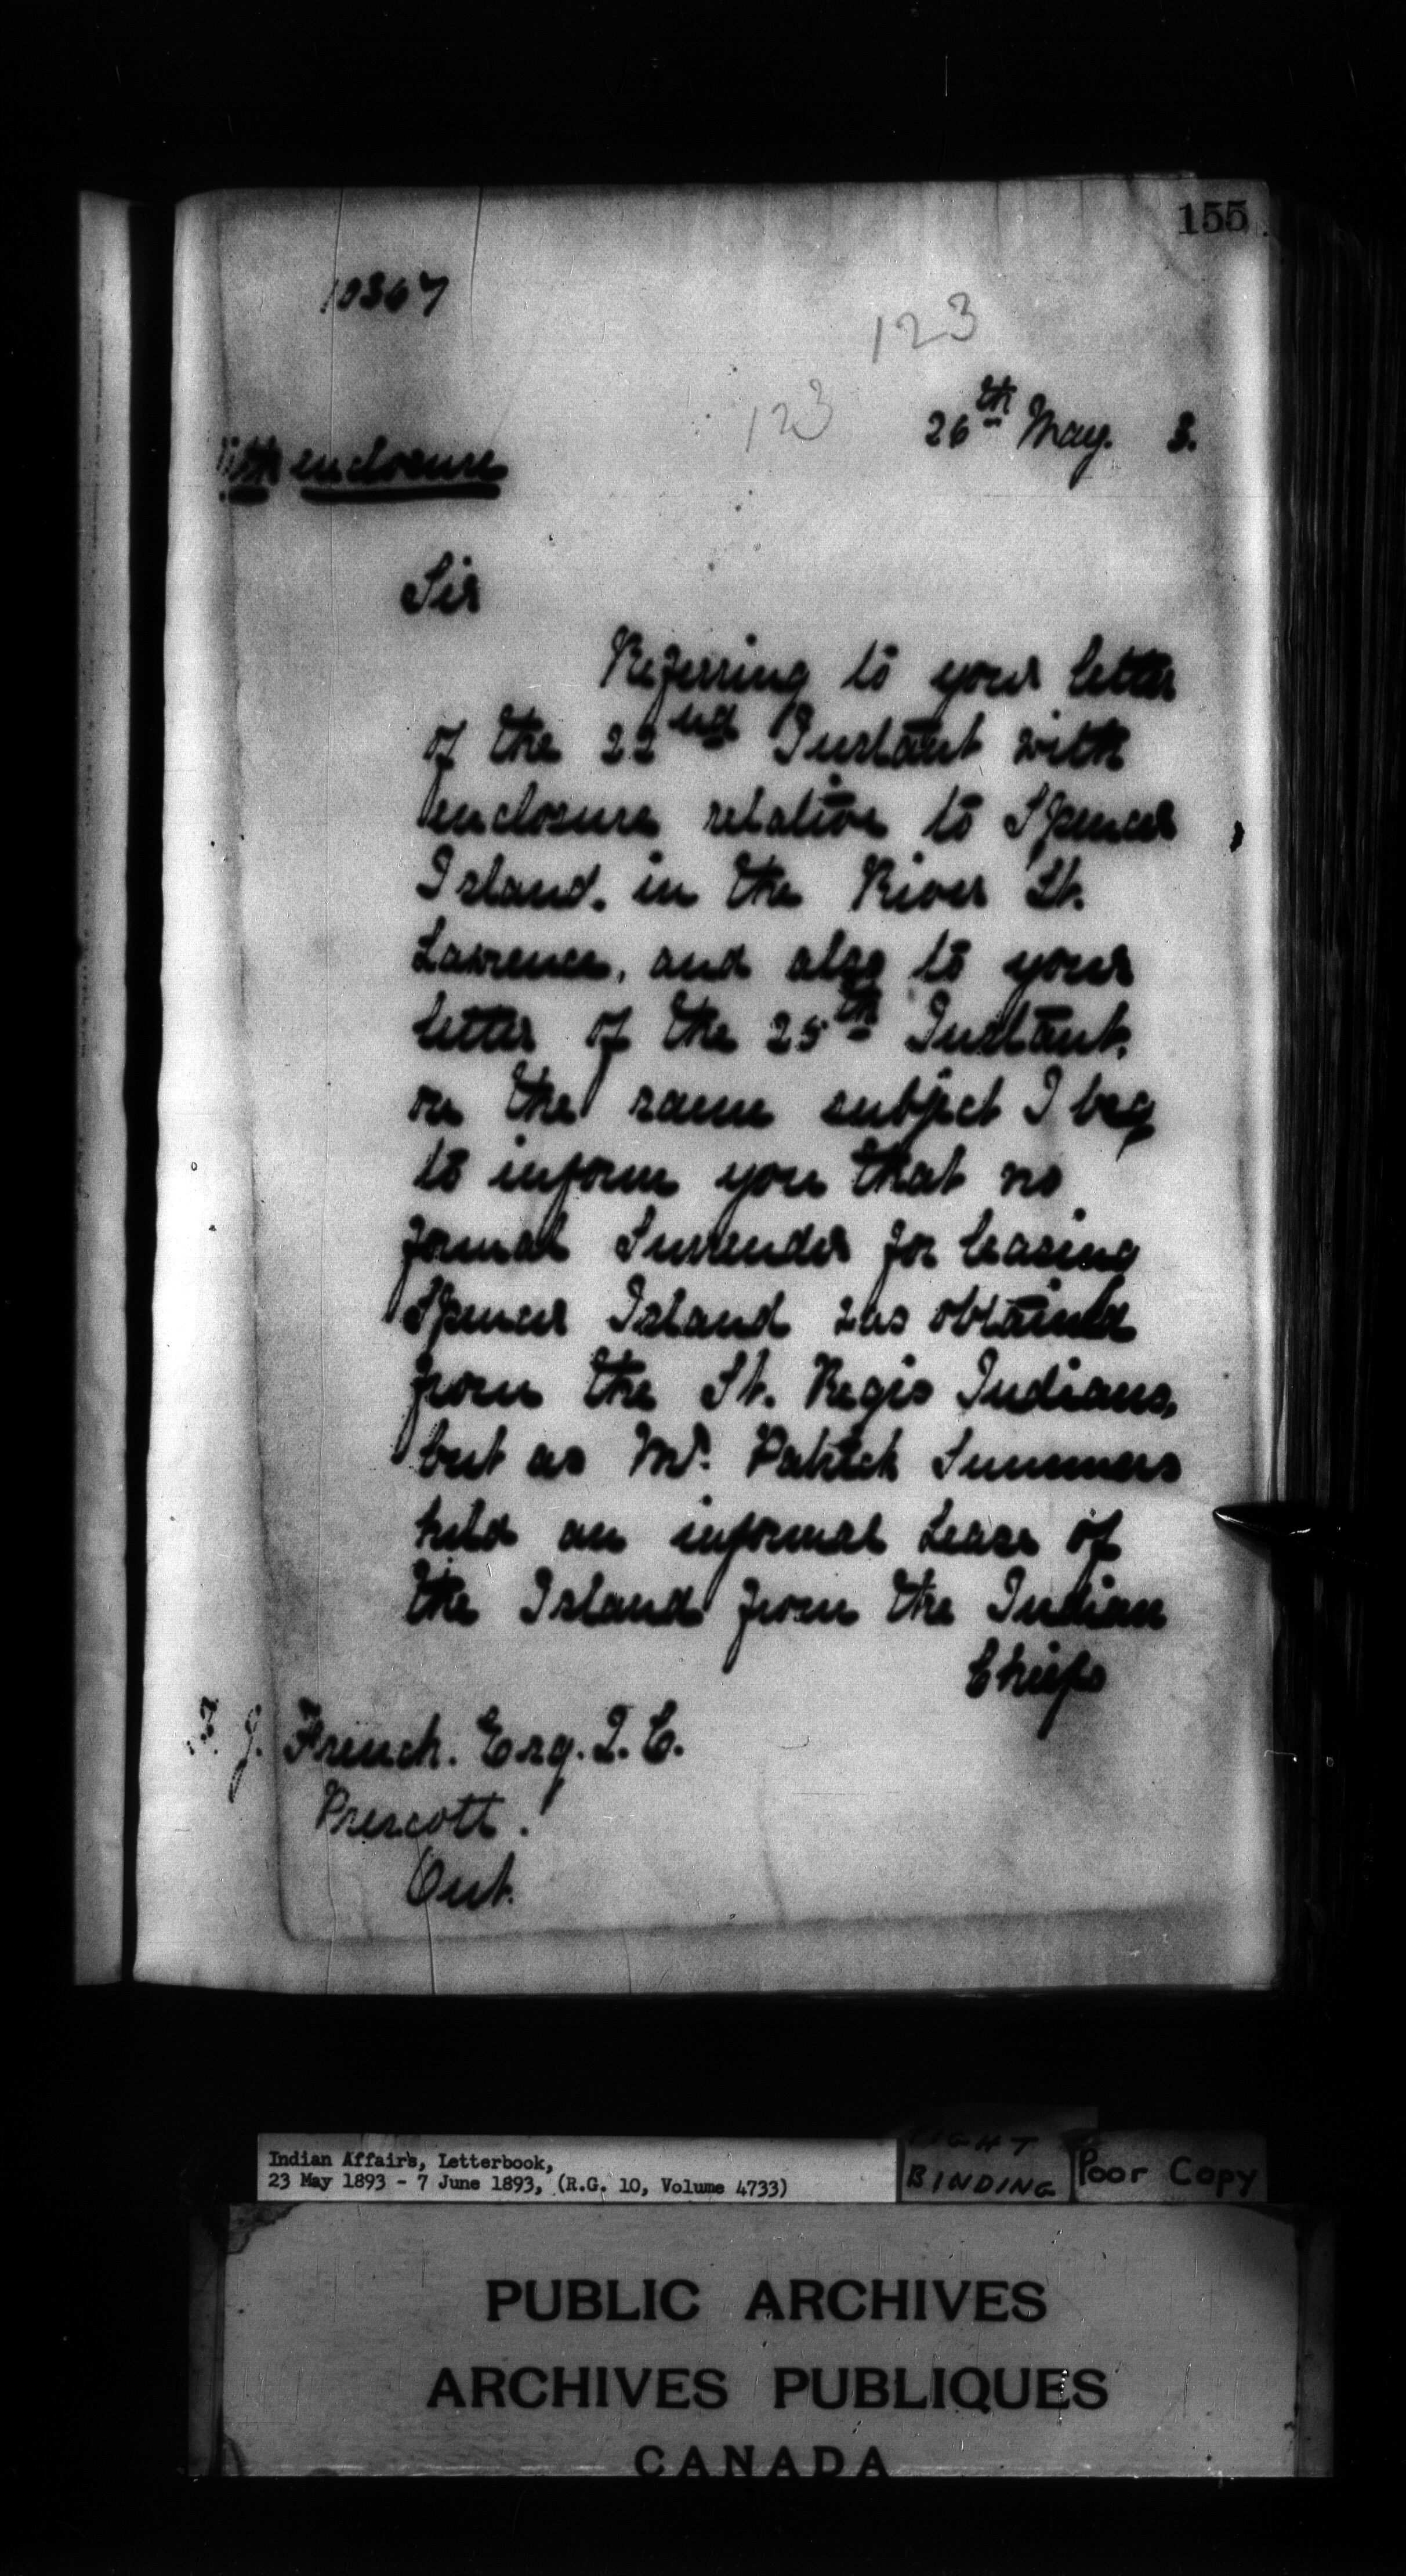 155.
10367
123
123
26th May. 3.
With enclosure
Sir
Referring to your letter
of the 22nd Instant with
enclosure relative to Spencer
Island. in the River St.
Lawrence, and also to your
letter of the 25th Instant.
on the same subject I beg
to inform you that no
formal Surrender for leasing
Spencer Island was obtained
from the St. Regis Indians,
but as Mr. Patrick Summers
held an informal Lease of
the Island from the Indian
Chiefs
J. French. Esq. Q. C.
Prescott.
Ont.
Indian Affairs, Letterbook,
23 May 1893 - 7 June 1893, (R.G. 10, Volume 4733)
BINDING
Poor Copy
PUBLIC ARCHIVES
ARCHIVES PUBLIQUES
CANADA